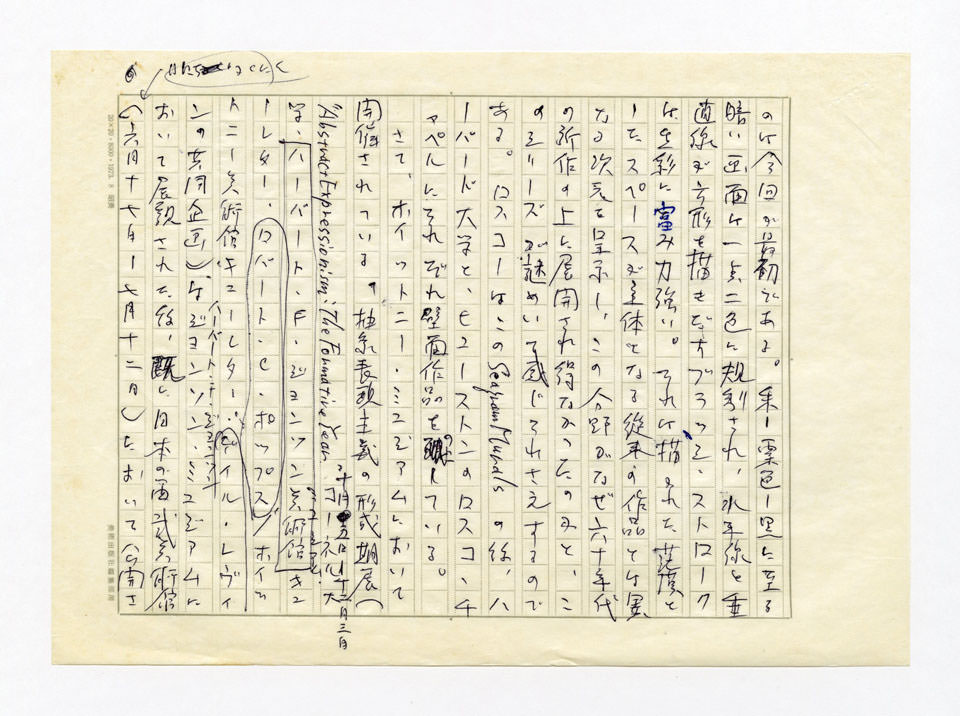 のは今回が最初である。朱ー栗色ー黒に至る
暗い画面は一点二色に規制され、水平線と垂
直線が方形を描きだすブラッシ・ストローク
は生彩に富み力強い。それは描かれた茫漠と
したスペースが主体となる従来の作品とは異
なる次元を呈示し、この分野がなぜ六十年代
の新作の上に展開され得なかったのかと、こ
のシリーズが謎めいて感じられさえするので
ある。ロスコーはこのSeagram Muralsの後、ハ
ーバード大学と、ヒューストンのロスコ・チ
ャペルにそれぞれ壁画作品を残している。
さて、ホイットニー・ミュゼアムにおいて
開催されている、抽象表現主義の形成期展(
"Abstract Expressionism: The Formative Years"
十月五日ー十二月三日
コーネル大
学、ハーバート・F・ジョンソン美術館キュ
ミュゼアム
ーレター、ロバート・C・ホッブス/ホイッ
トニー美術館キューレター・ゲイル・レヴィ
ンの共同企画)はジョンソン・ミュゼアムに
おいて展観された後、既に日本の西武美術館
(六月十七日ー七月十二日)において公開さ
20×20・1973.8